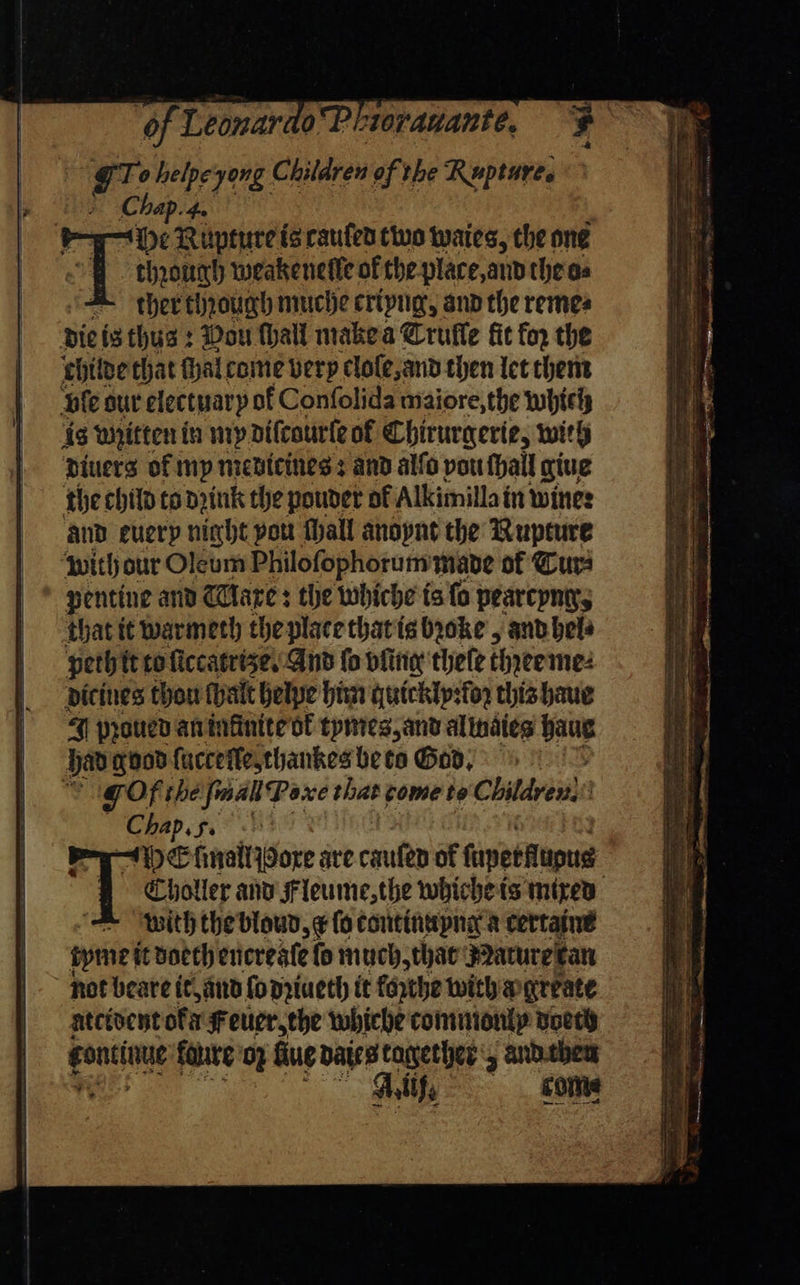 of Leonardo Phiorauante. 3
¶ To helpe yong Children of the Rupture.
Chap. 4.
THe Rupture is caused two waies, the one
through weakenesse of the place, and the o-
ther through muche criyng, and the reme-
die is thus: You shall make a Trusse fit for the
childe that shal come very close, and then let them
vse our electuary of Consolida maiore, the which
is written in my discourse of Chirurgerie, with
diuers of my medicines: and also you shall giue
the child to drink the pouder of Alkimilla in wine:
and euery night you shall anoynt the Rupture
with our Oleum Philosophorum made of Tur-
pentine and Waxe: the whiche is so pearcyng,
that it warmeth the place that is broke, and hel-
peth it to siccatrize. And so vsing these three me-
dicines thou shalt helpe him quickly: for this haue
I proued an infinite of tymes, and alwaies haue
had good successe, thankes be to God.
¶ Of the small Poxe that come to Children.
Chap. 5.
THE small Poxe are caused of superfluous
Choller and Fleume, the whiche is mixed
with the bloud, & so continuyng a certaine
tyme it doeth encrease so much, that Nature can
not beare it, and so driueth it forthe with a greate
accident of a Feuer, the whiche commonly doeth
continue foure or fiue daies together, and then
A.iij. come